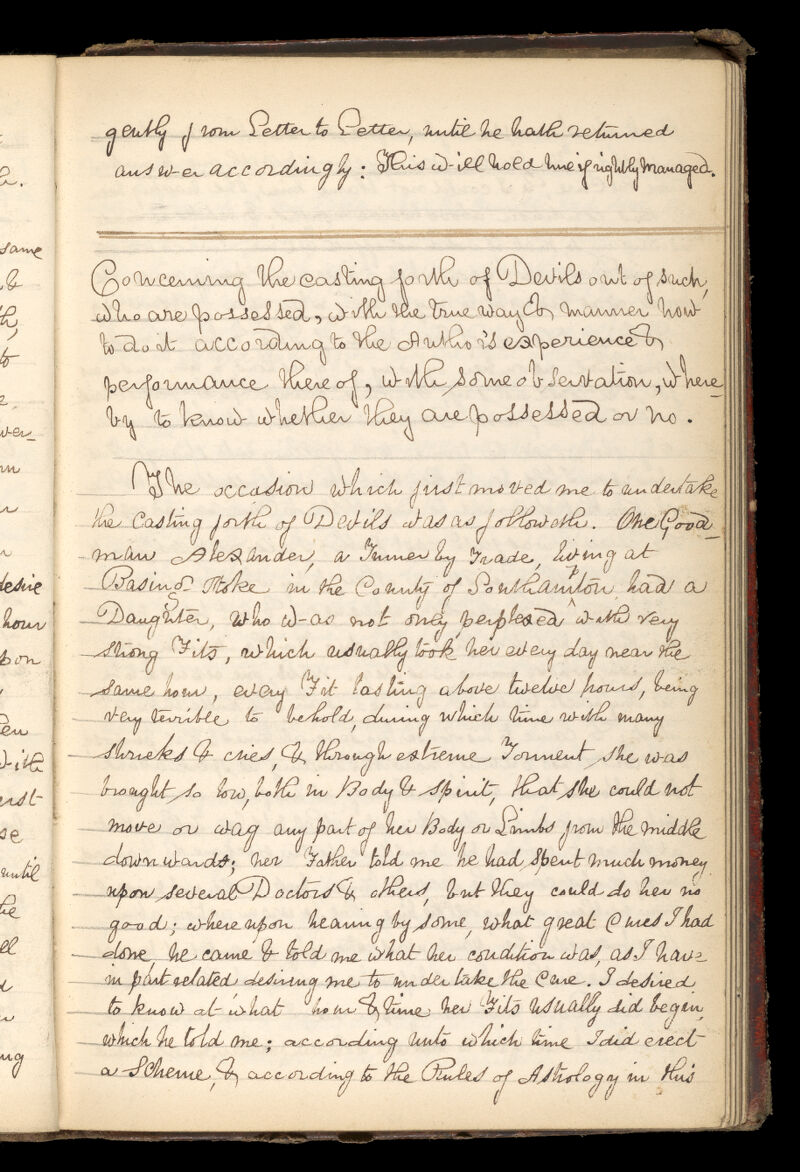 gently from Letter to Letter, until he hath returned
answer accordingly: This will hold true if rightly managed.
Concerning the casting forth of Devils out of such,
who are possessed, with the true way & manner how
to do it according to the Author's experience &
performance thereof, with some observation, where-
by to know whether they are possessed or no.
The occasion which first moved me to undertake
the casting forth of Devils was as followeth. One Good-
man Alexander, a Turner by Trade, living at
Basing Stoke in the County of Southampton had a
Daughter, who was not only perplexed with very
strong Fits, which usually took her every day near the
same hour, every Fit lasting above twelve hours, being
very terrible to behold, during which time with many
shrieks & cries, & through extreme Torment she was
brought so low, both in Body & spirit, that she could not
move or wag any part of her Body or Limbs from the middle
downwards; her Father told me he had spent much money
upon several Doctors & others, but they could do her no
good; whereupon hearing by some, what great Cures I had
done, he came & told me what her condition was, as I have
in part related desiring me to undertake the Cure. I desired
to know at what hour & time her Fits usually did begin,
which he told me; according unto which time I did erect
a Scheme, & according to the Rules of Astrology in this
same
&
th,
to
ver-
desire
hour
pon
en
with
se
until
he
ng